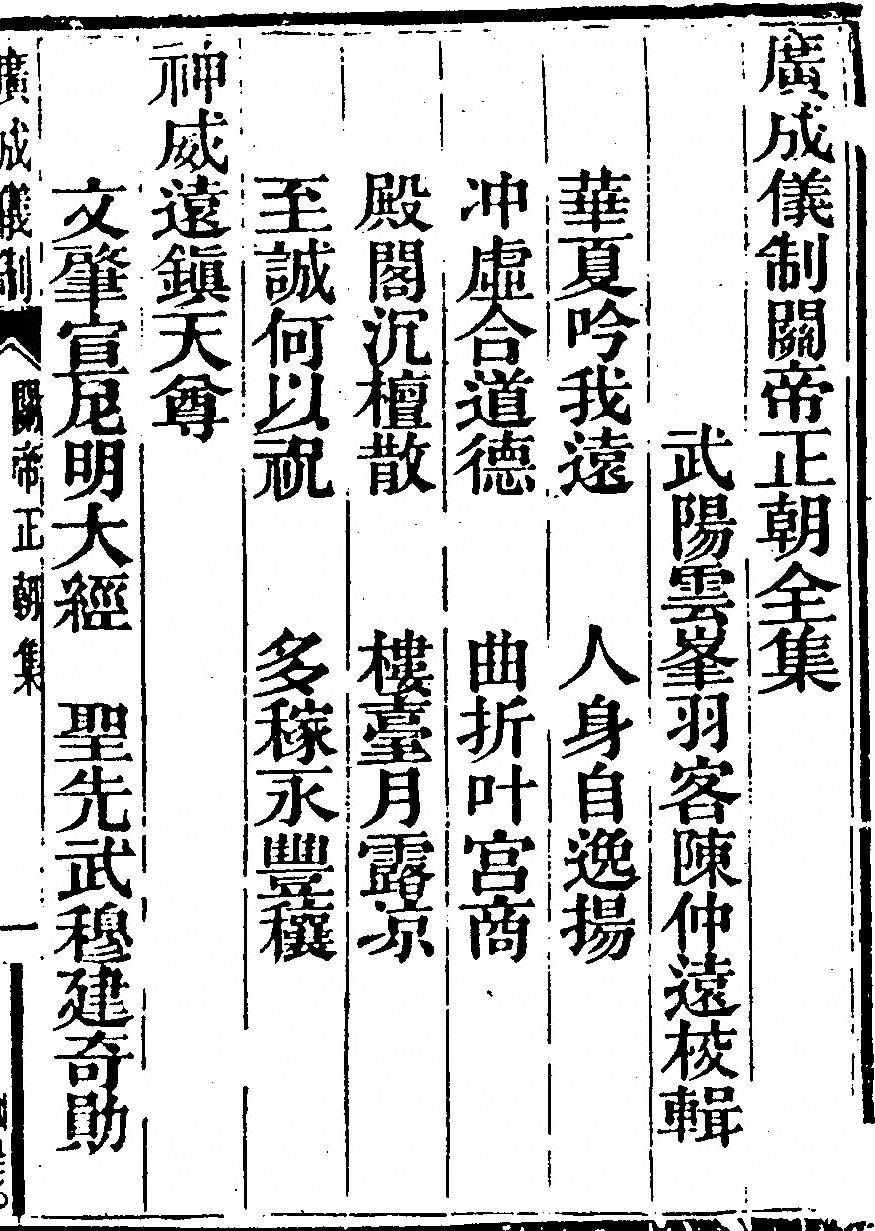 廣成儀制關帝正朝全集
武陽雲峯羽客陳仲遠校輯
華夏吟我遠 人身自逸揚
冲虛合道德 曲折叶宮商
殿閣沉檀散 樓臺月露凉
至誠何以祝 多稼永豐穰
神威遠鎭天尊
文肇宣尼明大經 聖先武穆建奇勛
廣成儀制 關帝正朝集 一